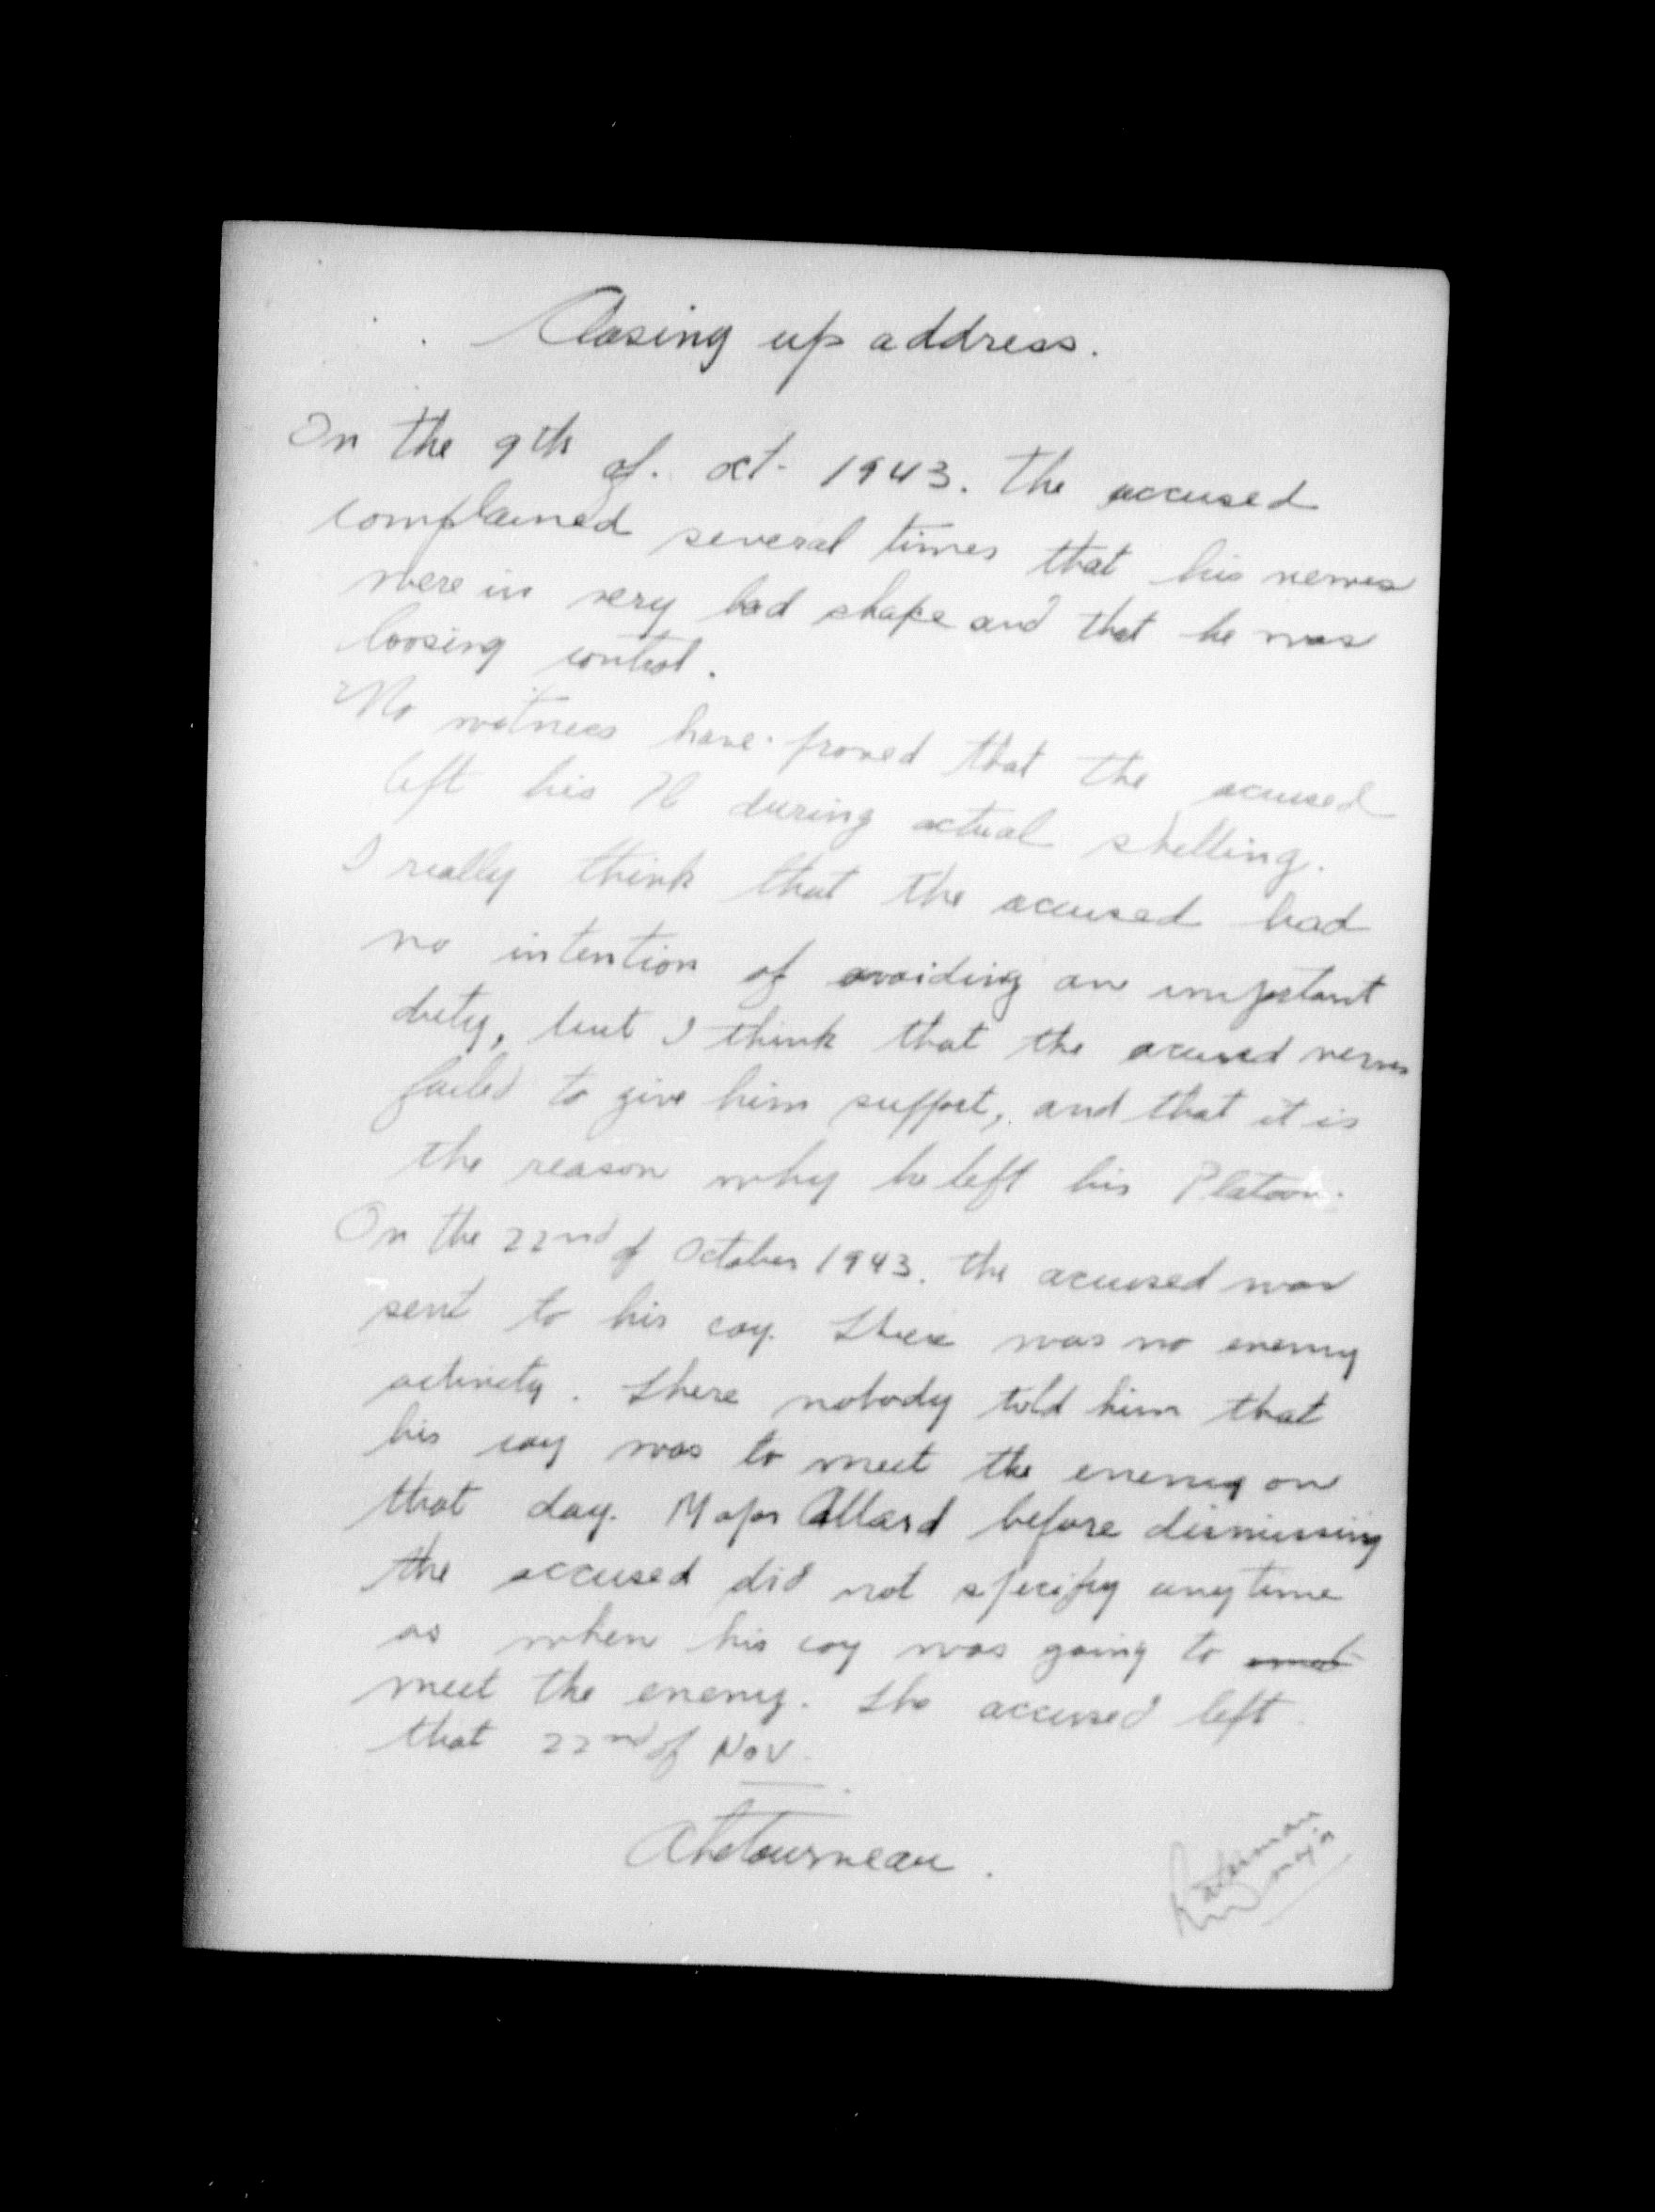 Closing up address.
On the 9th of. oct. 1943. The accused
complained several times that his nerves
were in very bad shape and that he was
loosing control.
No witness have proved that the accused
left his Pl during actual shelling.
I really think that the accused had
no intention of avoiding an important
duty, but I think that the accused nerves
failed to give him support, and that it is
the reason why he left his Platoon.
On the 22nd of October 1943. the accused was
sent to his coy. There was no enemy
activity. There nobody told him that
his coy was to meet the enemy on
that day. Major Allard before dismissing
the accused did not specify anytime
as when his coy was going to
meet the enemy. The accused left
that 22nd of Nov.
A Letourneau.
major